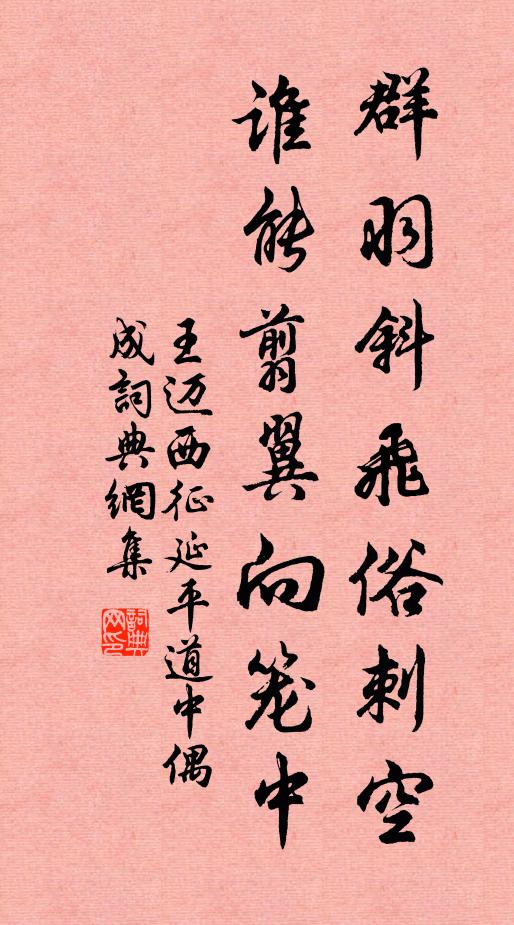 群羽斜飛俗刺空
谁能翦翼向笼中
王迈西征延平道中偶
成詞典網集
詞典
网印